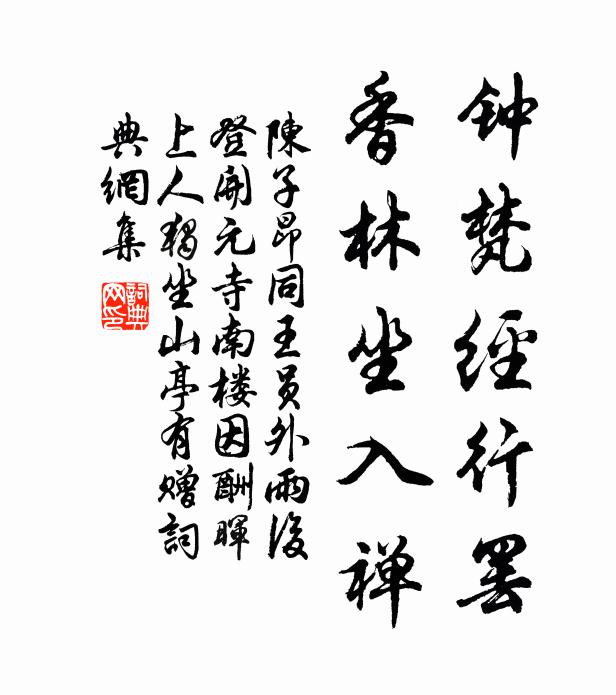 钟梵經行罢
香林坐入禅
陳子昂同王员外雨後
登開元寺南楼因酬暉
上人獨坐山亭有赠詞
典網集
詞典
网印